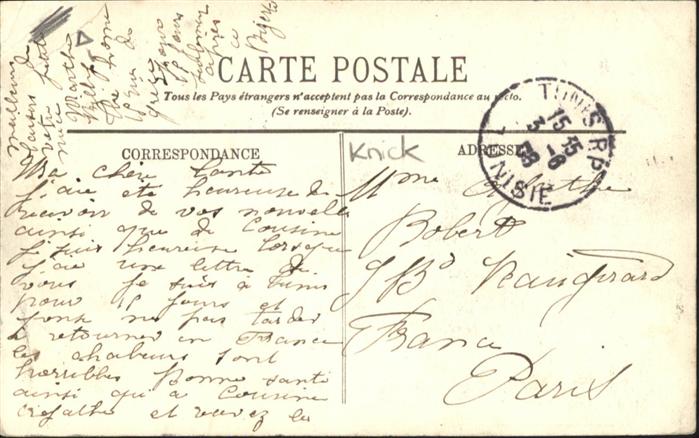 CARTE POSTALE
Tous les Pays étrangers n'acceptent pas la Correspondance au recto.
(Se renseigner à la Poste).
TUNIS R.P
15-15
3-6
08
TUNISIE
CORRESPONDANCE
Knick
ADRESSE
Ma chère tante
j'aie été heureuse de
recevoir de vos nouvelle
ainsi que de Cousine
je suis heureuse lorsque
j'aie une lettre de
vous je suis à Tunis
pour 15 jours et
pense ne pas tarder
a retourner en France
les chaleurs sont
horribles Bonne santé
ainsi qu'a Cousine
et recevez les
meilleurs
baisers de
votre petite
nièce
Marthe
Rue de
15 jours
après
a
Mme Agathe
Robert
Bd Vaugirard
France
Paris